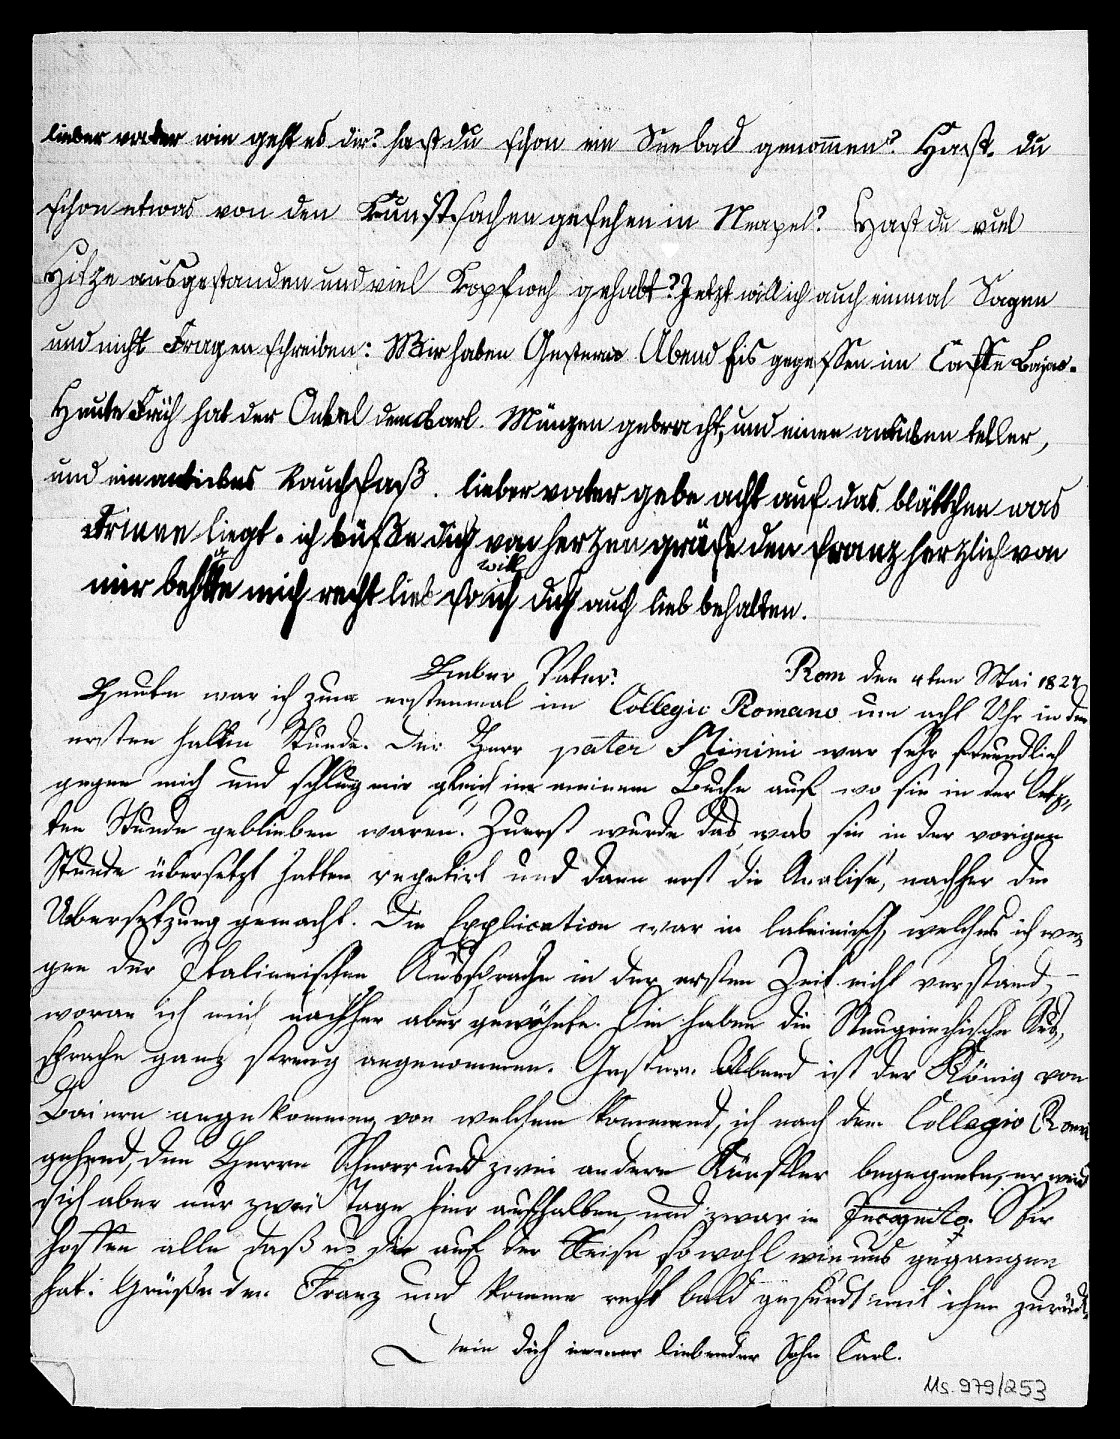 lieber vater wie geht es dir? hast du schon ein Seebad genommen? Hast du
schon etwas von den Kunstsachen gesehen in Neapel? Hast du viel
Hitze ausgestanden und viel Kopfweh gehabt? Jetzt will ich auch einmal Sagen
und nicht Fragen schreiben: Wir haben Gestern Abend Eis gegessen im Caffe
Heute Früh hat der Onkel dem Carl Münzen gebracht, und einen antiken teller,
und ein antickes Rauchfaß. lieber vater gebe acht auf das blättchen was
drinne liegt. ich küße dich von herzen grüse den franz herzlich von
mir behalte mich recht lieb so will ich dich auch lieb behalten.
Lieber Vater! Rom den 4ten Mai 1827
Heute war ich zum erstenmal im Collegio Romano um acht Uhr in der
ersten halben Stunde. Der Herr pater Minini war sehr freundlich
gegen mich und schlug mir gleich in meinem Buche auf wo sie in der letz-
ten Stunde geblieben waren. Zuerst wurde das was sie in der vorigen
Stunde übersetzt hatten repetirt und dann erst die Analise, nachher die
Uebersetzung gemacht. Die Explication war in lateinisch, welches ich we-
gen der Italienischen Aussprache in der ersten Zeit nicht verstand,
woran ich mich nachher aber gewöhnte. Sie haben die Neugriechische Aus-
sprache ganz streng angenommen. Gestern Abend ist der König von
Baiern angekommen, von welchem kommend, ich nach dem Collegio Romano
gehend, den Herrn Schnorr und zwei andere Künstler begegnete, er wird
sich aber nur zwei Tage hier aufhalten, und zwar in Incognito. Wir
hoffen alle daß es dir auf der Reise so wohl wie uns gegangen
hat. Grüße den Franz und komme recht bald gesundt mit ihm zurück.
Dein dich immer liebender Sohn Carl.
Ms. 979/253